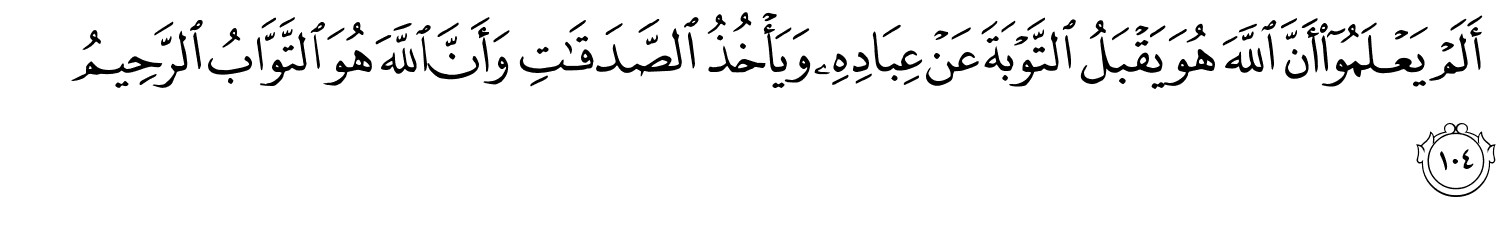 أَلَمۡ يَعۡلَمُوٓاْ أَنَّ ٱللَّهَ هُوَ يَقۡبَلُ ٱلتَّوۡبَةَ عَنۡ عِبَادِهِۦ وَيَأۡخُذُ ٱلصَّدَقَٰتِ وَأَنَّ ٱللَّهَ هُوَ ٱلتَّوَّابُ ٱلرَّحِيمُ
١٠٤